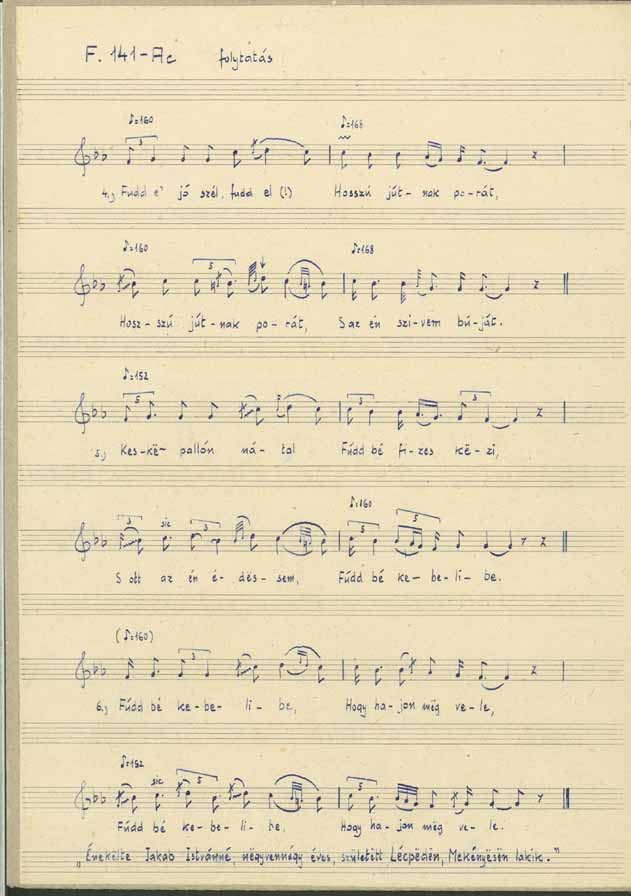 F. 141-Ac folytatás
♪=160 ♪=168
4., Fudd e' jó szél, fudd el (!) Hosszú jút- nak po-rát,
♪=160 ♪=168
Hosz-szú jút-nak po-rát, S az én szi-vem bú-ját.
♪=152
5., Kes-kë- pallón ná-tal Fúdd bé fi-zes kë-zi,
sic ♪=160
S ott az én é-dës-sem, Fúdd bé ke-be-li-be.
(♪=160)
6., Fúdd bé ke-be-li-be, Hogy ha-jon még ve-le,
♪=152 sic
Fúdd bé ke-be-li-be, Hogy ha-jon még ve-le.
„Énekëlte Jakab Istvánné, nëgyvennégy éves, született Lécpëdën, Mekényësën lakik."